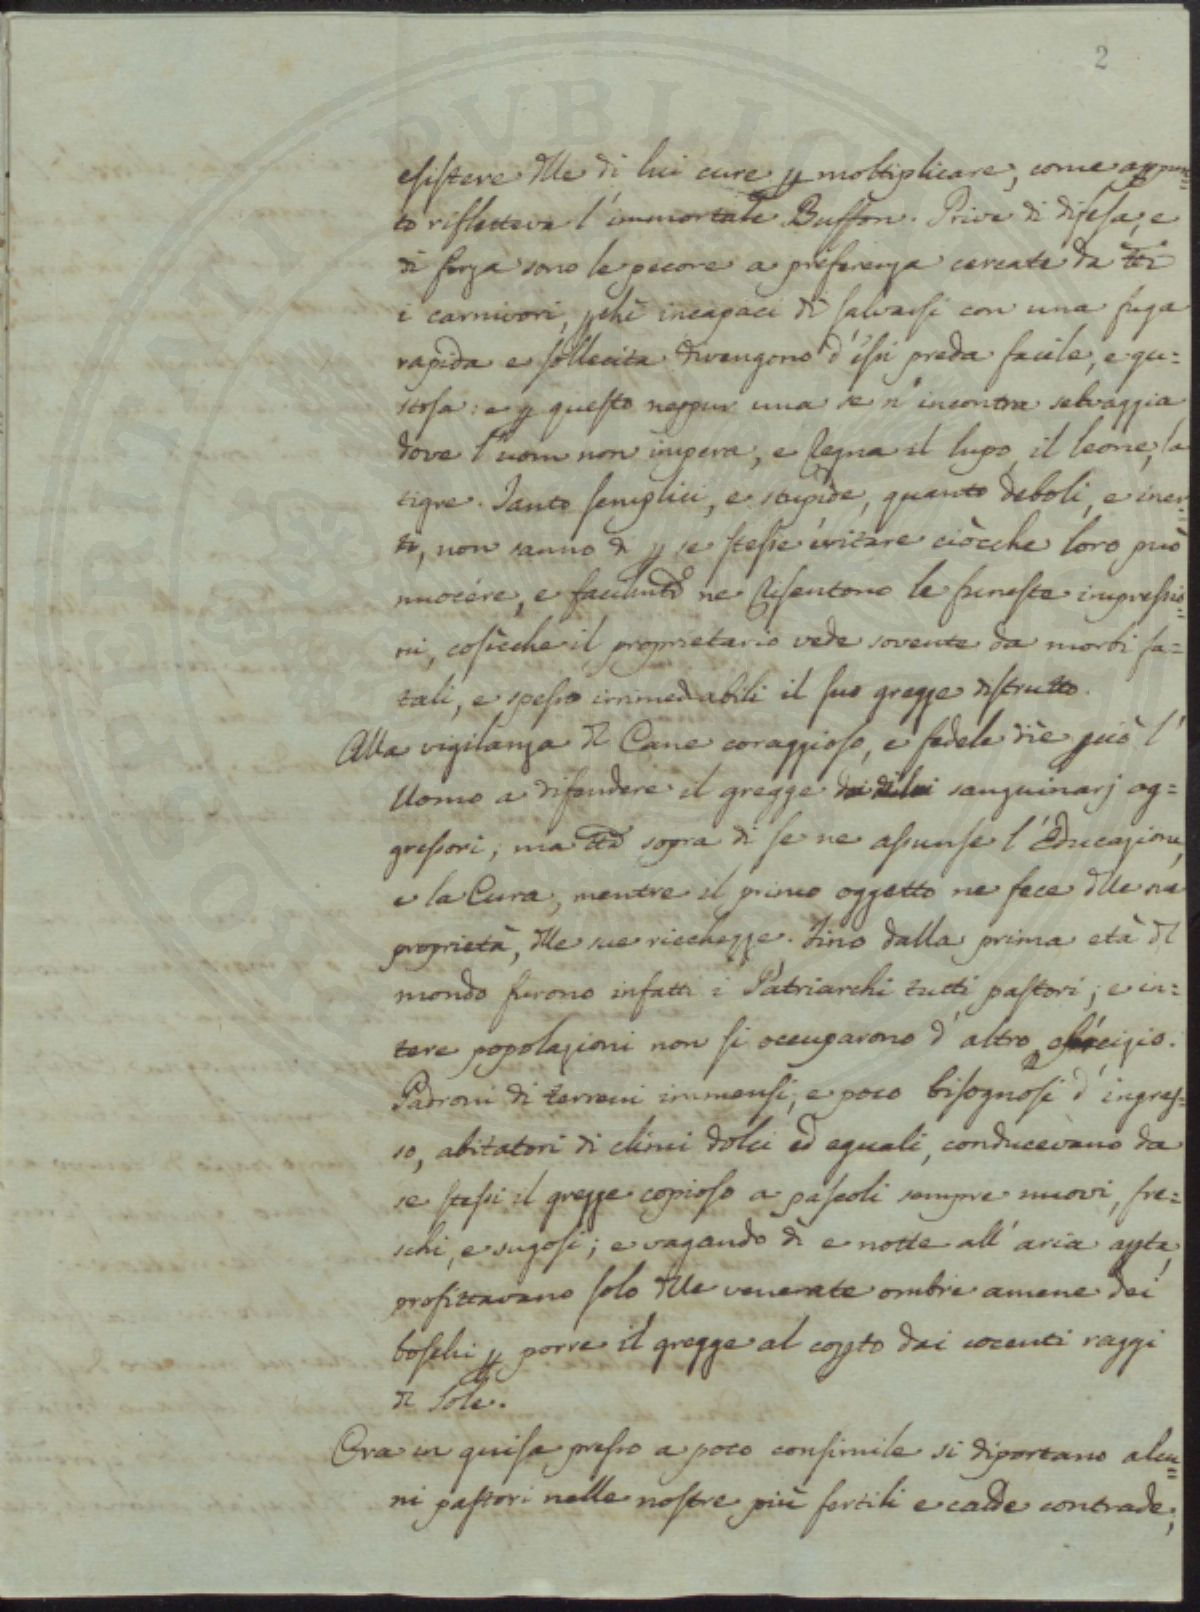 2
esistere dlle di lui cure p moltiplicare, come appun=
to rifletteva l'immortale Buffon. Prive di difesa, e
di forza sono le pecore a preferenza cercate da tti
i carnivori, pchè incapaci di salvarsi con una fuga
rapida e sollecita divengono d'essi preda facile, e gu=
stosa: e p questo neppur una se n'incontra selvaggia
dove l'uom non impera, e regna il lupo, il leone, la
tigre. Tanto semplici, e stupide, quanto deboli, e iner=
ti, non sanno di p se stesse evitare ciòcche loro può
nuocere, e facilmte ne risentono le funeste impressio=
ni, cosicche il proprietario vede sovente da morbi fa=
tali, e spesso irrimediabili il suo gregge distrutto.
Alla vigilanza dl Cane coraggioso, e fedele diè pciò l'
Uomo a difendere il gregge dai sanguinarj ag=
gressori; ma tto sopra di se ne assunse l'Educazione,
e la Cura, mentre il primo oggetto ne fece dlle sue
proprietà, dlle sue ricchezze. Fino dalla prima età dl
mondo furono infatti i Patriarchi tutti pastori; e in=
tere popolazioni non si occuparono d'altro esercizio.
Padroni di terreni immensi, e poco bisognosi d'ingres=
so, abitatori di climi dolci ed eguali, conducevano da
se stessi il gregge copioso a pascoli sempre nuovi, fre=
schi, e sugosi; e vagando dì e notte all'aria apta,
profittavano solo dlle venerate ombre amene dei
boschi p porre il gregge al copto dai cocenti raggi
dl Sole.
Ora in guisa presso a poco consimile si diportano alcu=
ni pastori nelle nostre più fertili e calde contrade;
PUBLIC